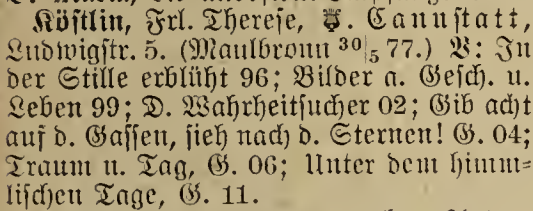 Köstlin, Frl. Therese, Cannstatt,
Ludwigstr. 5. (Maulbronn 30/5 77.) V: In
der Stille erblüht 96; Bilder a. Gesch. u.
Leben 99; D. Wahrheitsucher 02; Gib acht
auf d. Gassen, sieh nach d. Sternen! G. 04;
Traum u. Tag, G. 06; Unter dem himm=
lischen Tage, G. 11.